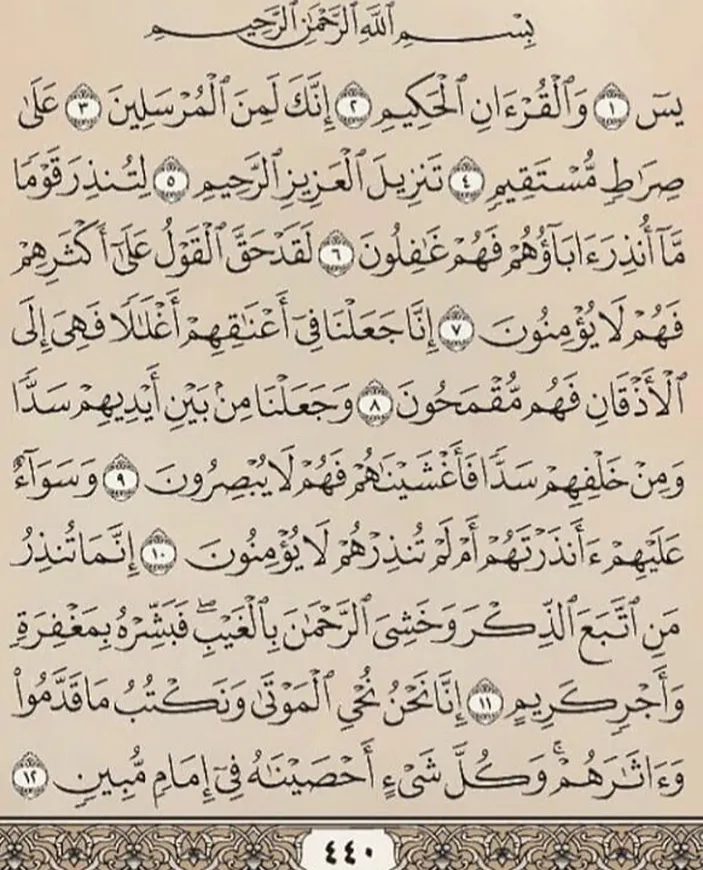 بِسْمِ ٱللَّهِ ٱلرَّحْمَٰنِ ٱلرَّحِيمِ
يسٓ ١ وَٱلْقُرْءَانِ ٱلْحَكِيمِ ٢ إِنَّكَ لَمِنَ ٱلْمُرْسَلِينَ ٣ عَلَىٰ
صِرَٰطٍ مُّسْتَقِيمٍ ٤ تَنزِيلَ ٱلْعَزِيزِ ٱلرَّحِيمِ ٥ لِتُنذِرَ قَوْمًا
مَّآ أُنذِرَ ءَابَآؤُهُمْ فَهُمْ غَٰفِلُونَ ٦ لَقَدْ حَقَّ ٱلْقَوْلُ عَلَىٰٓ أَكْثَرِهِمْ
فَهُمْ لَا يُؤْمِنُونَ ٧ إِنَّا جَعَلْنَا فِىٓ أَعْنَٰقِهِمْ أَغْلَٰلًا فَهِىَ إِلَى
ٱلْأَذْقَانِ فَهُم مُّقْمَحُونَ ٨ وَجَعَلْنَا مِنۢ بَيْنِ أَيْدِيهِمْ سَدًّا
وَمِنْ خَلْفِهِمْ سَدًّا فَأَغْشَيْنَٰهُمْ فَهُمْ لَا يُبْصِرُونَ ٩ وَسَوَآءٌ
عَلَيْهِمْ ءَأَنذَرْتَهُمْ أَمْ لَمْ تُنذِرْهُمْ لَا يُؤْمِنُونَ ١٠ إِنَّمَا تُنذِرُ
مَنِ ٱتَّبَعَ ٱلذِّكْرَ وَخَشِىَ ٱلرَّحْمَٰنَ بِٱلْغَيْبِ ۖ فَبَشِّرْهُ بِمَغْفِرَةٍ
وَأَجْرٍ كَرِيمٍ ١١ إِنَّا نَحْنُ نُحْىِ ٱلْمَوْتَىٰ وَنَكْتُبُ مَا قَدَّمُوا۟
وَءَاثَٰرَهُمْ ۚ وَكُلَّ شَىْءٍ أَحْصَيْنَٰهُ فِىٓ إِمَامٍ مُّبِينٍ ١٢
٤٤٠